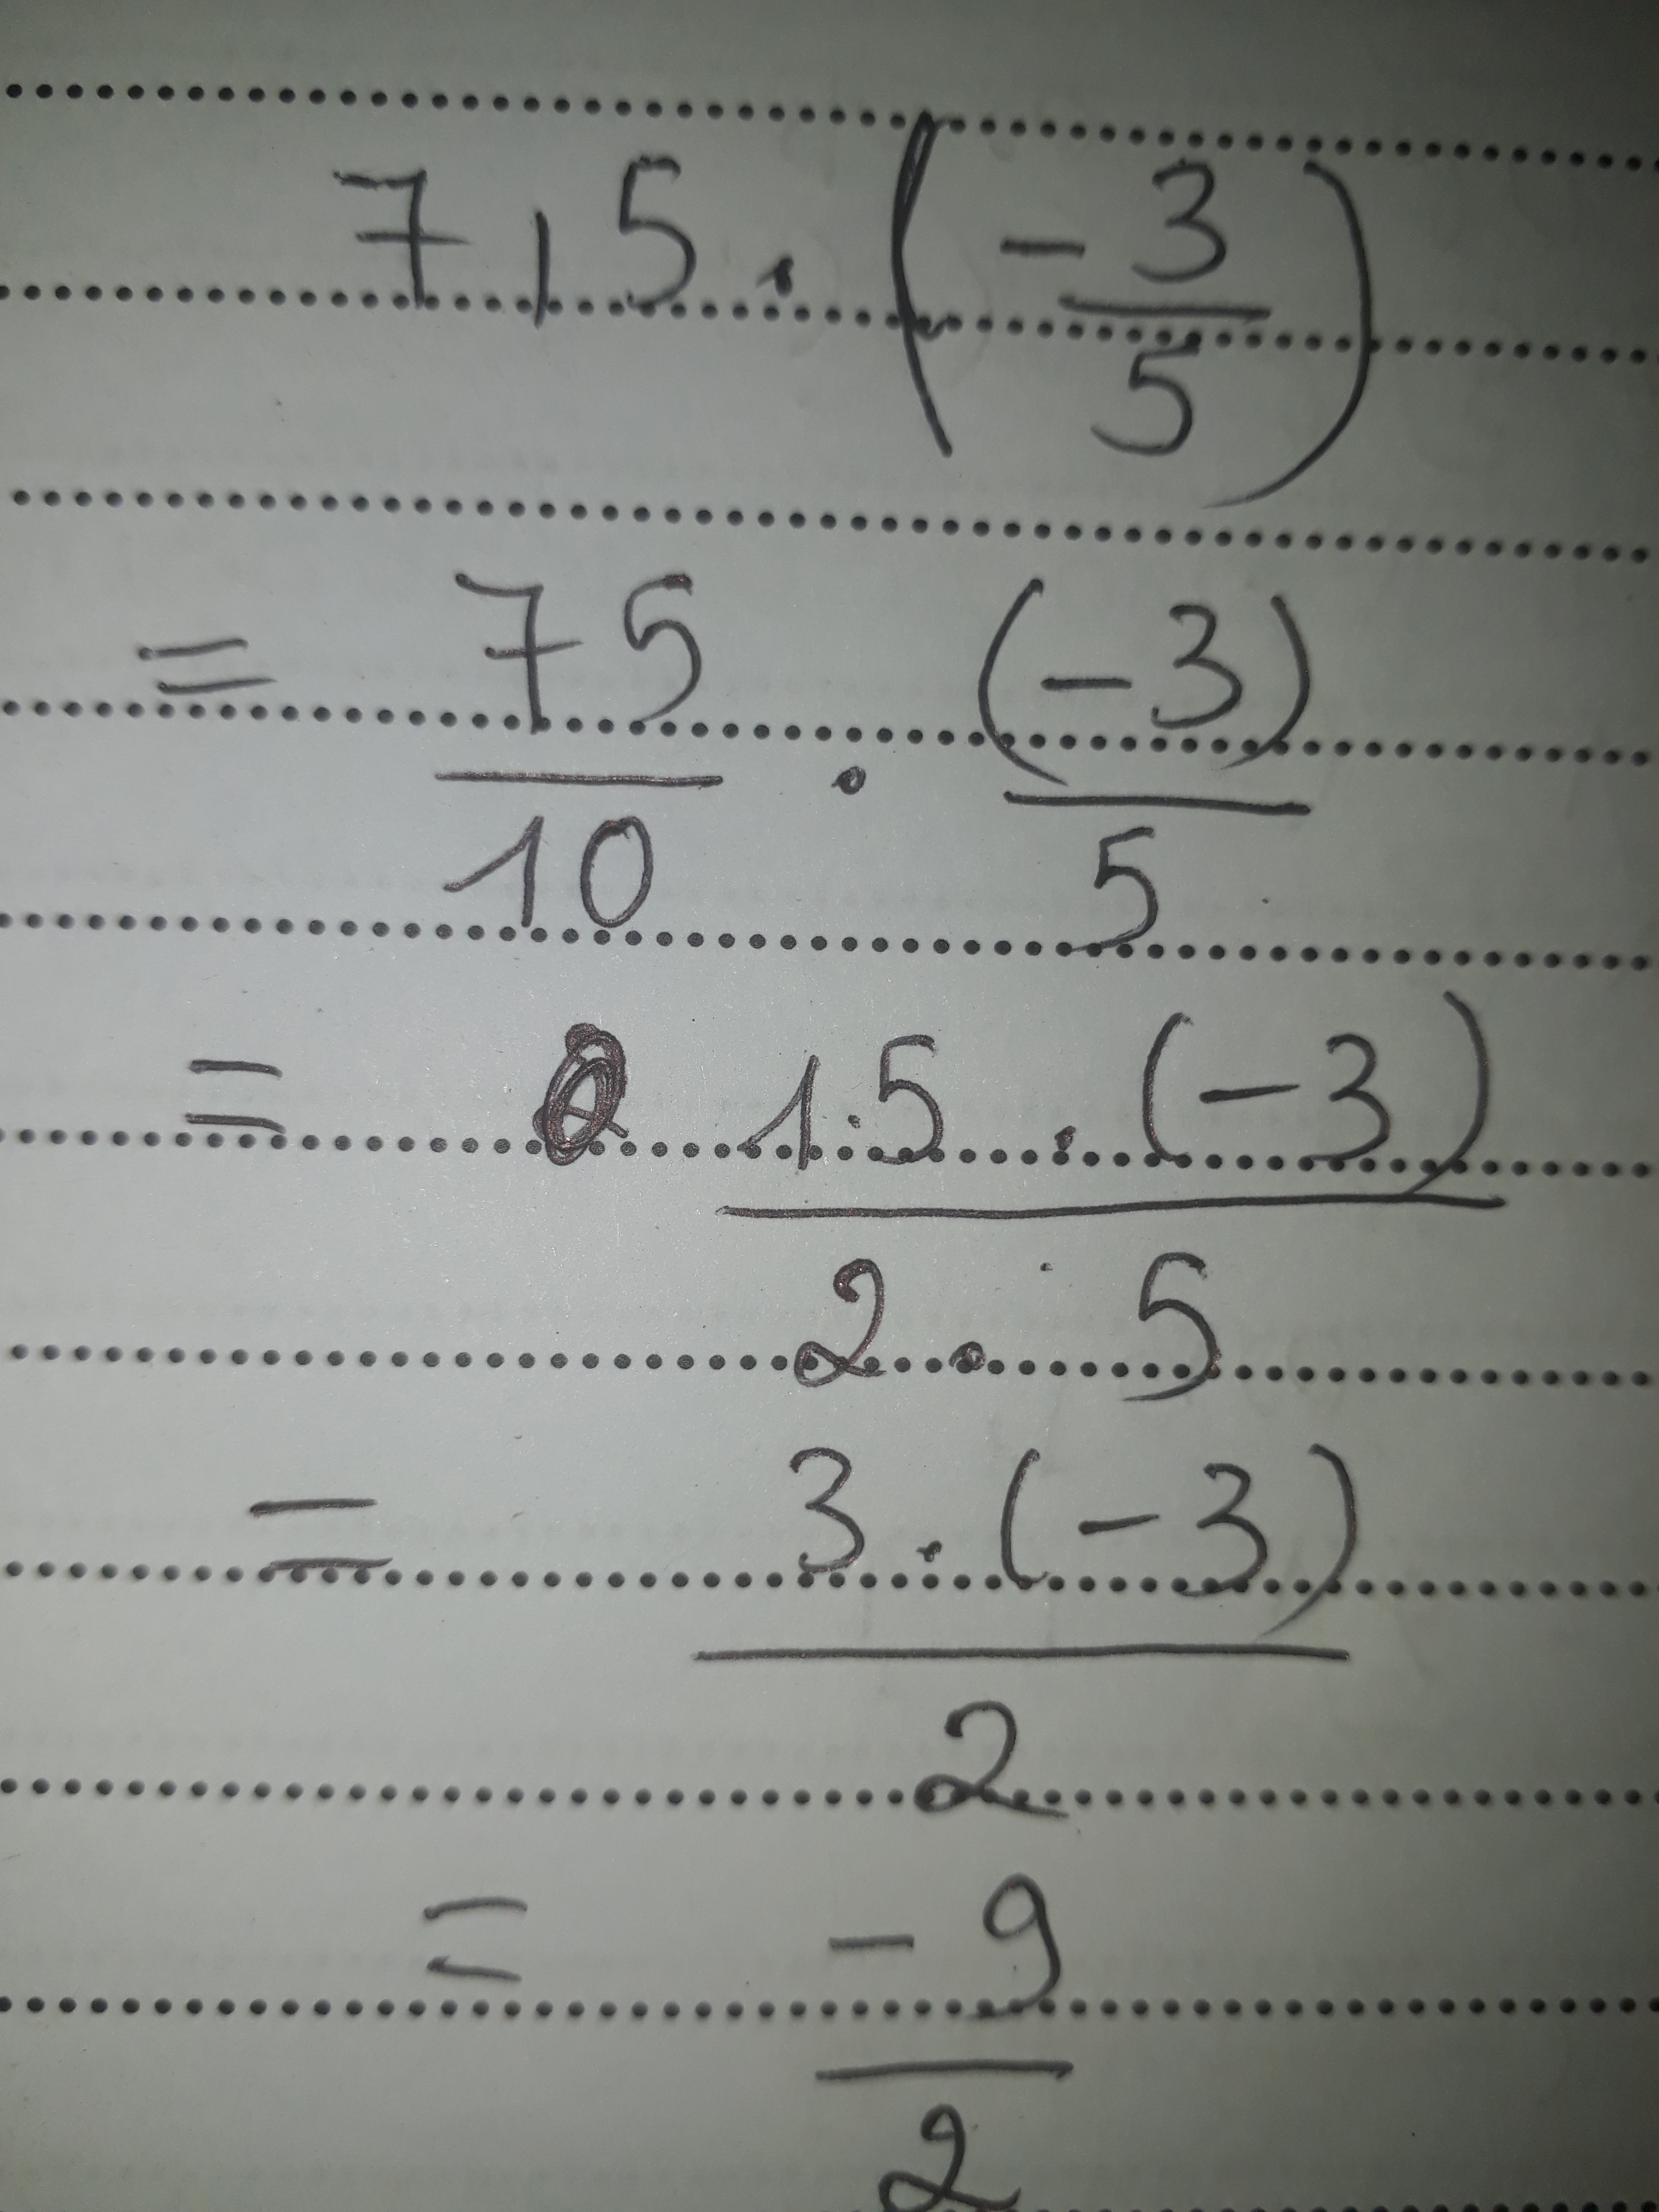 7,5 . (-3/5)
= 75/10 . (-3)/5
= 15 . (-3) / 2 . 5
= 3 . (-3) / 2
= -9/2